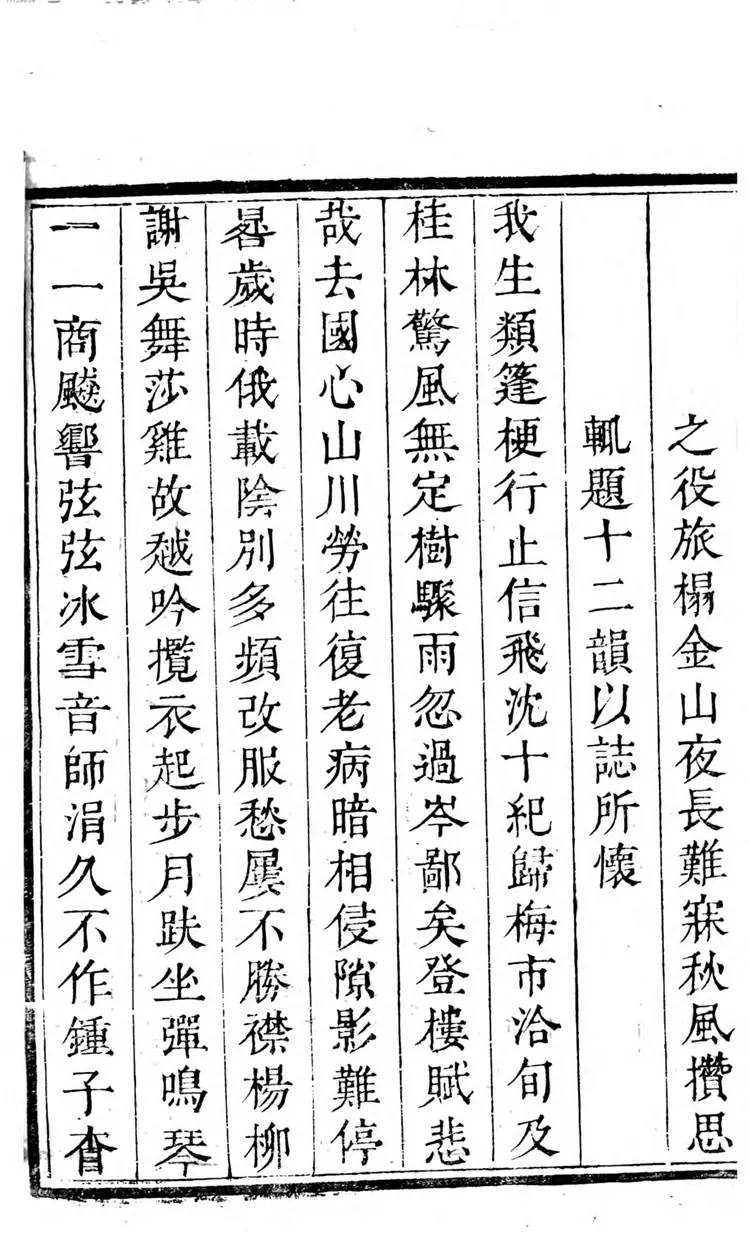 之役旅榻金山夜長難寐秋風攢思
輒題十二韻以誌所懷
我生類篷梗行止信飛沈十紀歸梅市洽旬及
桂林驚風無定樹驟雨忽過岑鄙矣登樓賦悲
哉去國心山川勞往復老病暗相侵隙影難停
晷歲時俄載陰別多頻改服愁屢不勝襟楊柳
謝吳舞莎雞故越吟攬衣起步月趺坐彈鳴琴
一一商飈響弦弦冰雪音師涓久不作鍾子杳